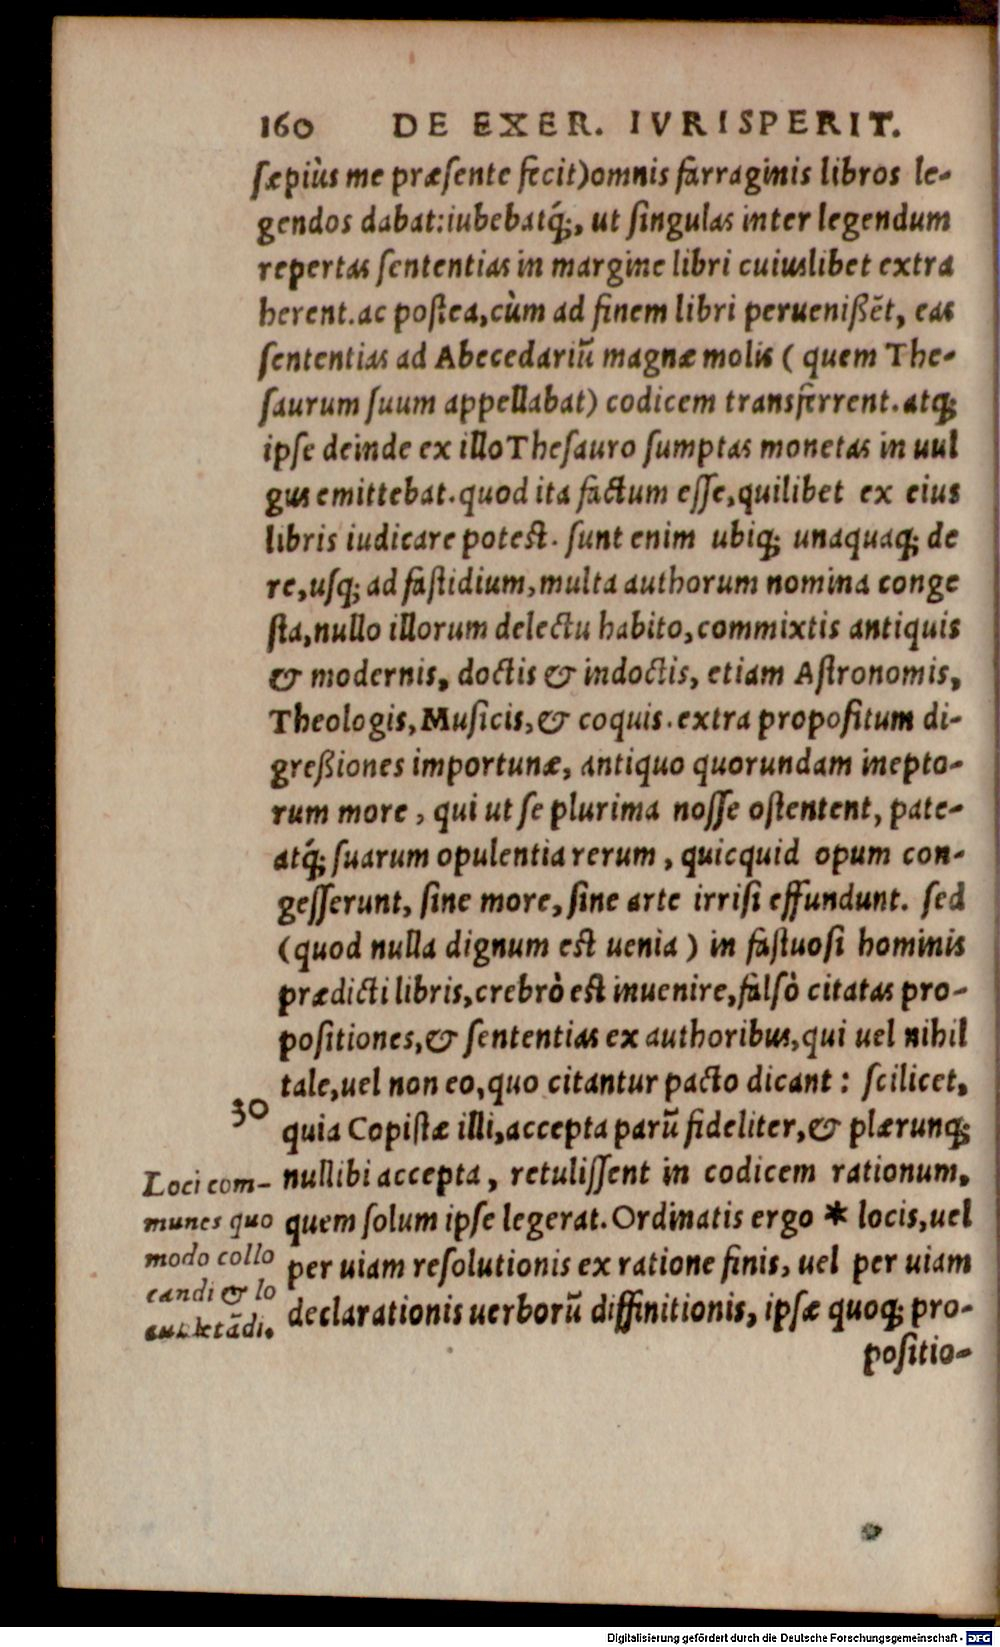 160 DE EXER. IVRISPERIT.
sæpiùs me præsente fecit)omnis farraginis libros le-
gendos dabat:iubebatq́;, ut singulas inter legendum
repertas sententias in margine libri cuiuslibet extra
herent.ac postea,cùm ad finem libri perueniſſẽt, eas
sententias ad Abecedariũ magnæ molis ( quem The-
saurum suum appellabat) codicem transferrent.atq;
ipse deinde ex illo Thesauro sumptas monetas in uul
gus emittebat.quod ita factum esse,quilibet ex eius
libris iudicare potest. sunt enim ubiq; unaquaq; de
re,usq; ad fastidium,multa authorum nomina conge
sta,nullo illorum delectu habito,commixtis antiquis
& modernis, doctis & indoctis, etiam Astronomis,
Theologis,Musicis,& coquis.extra propositum di-
greßiones importunæ, antiquo quorundam inepto-
rum more, qui ut se plurima nosse ostentent, pate-
atq́; suarum opulentia rerum, quicquid opum con-
gesserunt, sine more, sine arte irrisi effundunt. sed
(quod nulla dignum est uenia) in fastuosi hominis
prædicti libris,crebrò est inuenire,falsò citatas pro-
positiones,& sententias ex authoribus,qui uel nihil
tale,uel non eo,quo citantur pacto dicant: scilicet,
30
quia Copistæ illi,accepta parũ fideliter,& plærunq;
nullibi accepta, retulissent in codicem rationum,
quem solum ipse legerat.Ordinatis ergo * locis,uel
per uiam resolutionis ex ratione finis, uel per uiam
declarationis uerborũ diffinitionis, ipsæ quoq; pro-
positio-
Loci com-
munes quo
modo collo
candi & lo
Digitalisierung gefördert durch die Deutsche Forschungsgemeinschaft - DFG